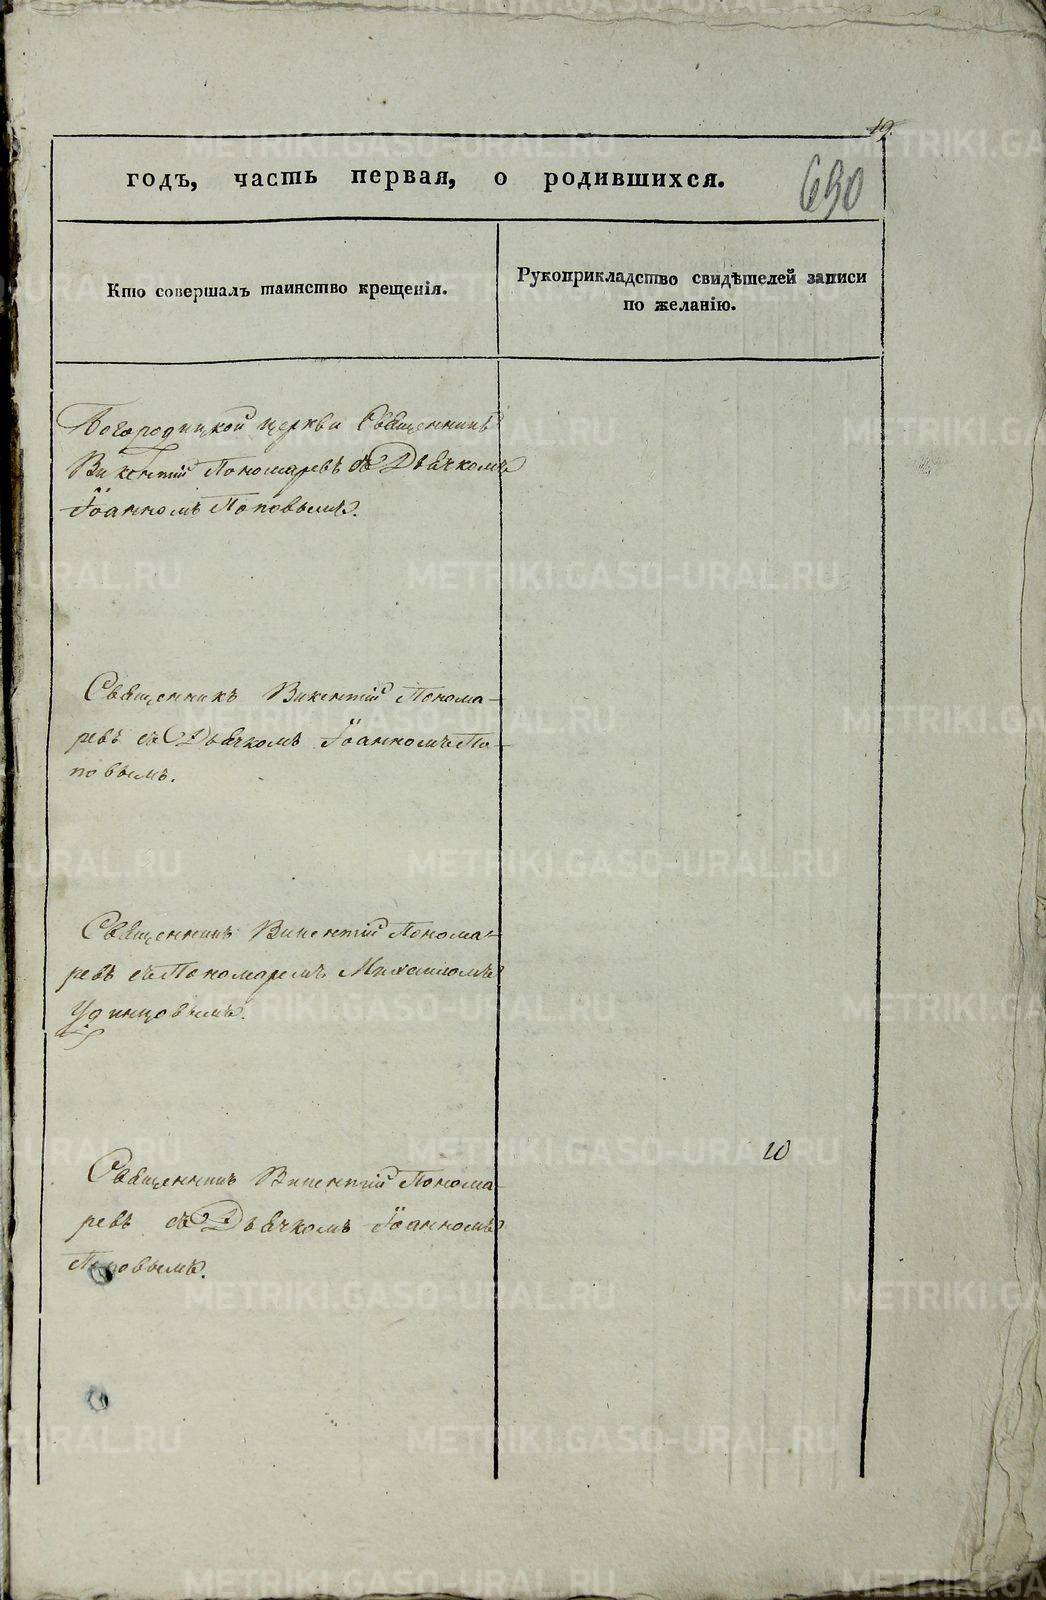 19.
годъ, часть первая, о родившихся.
690
Кто совершалъ таинство крещенія.
Рукоприкладство свидѣтелей записи
по желанію.
Богородицкой церкви Священникъ
Викентій Пономаревъ съ Дьячкомъ
Іоанномъ Поповымъ.
Священникъ Викентій Понома-
ревъ съ Дьячкомъ Іоанномъ По-
повымъ.
Священникъ Викентій Понома-
ревъ съ Пономаремъ Михаиломъ
Удинцовымъ.
10
Священникъ Викентій Понома-
ревъ съ Дьячкомъ Іоанномъ
Поповымъ.
METRIKI.GASO-URAL.RU